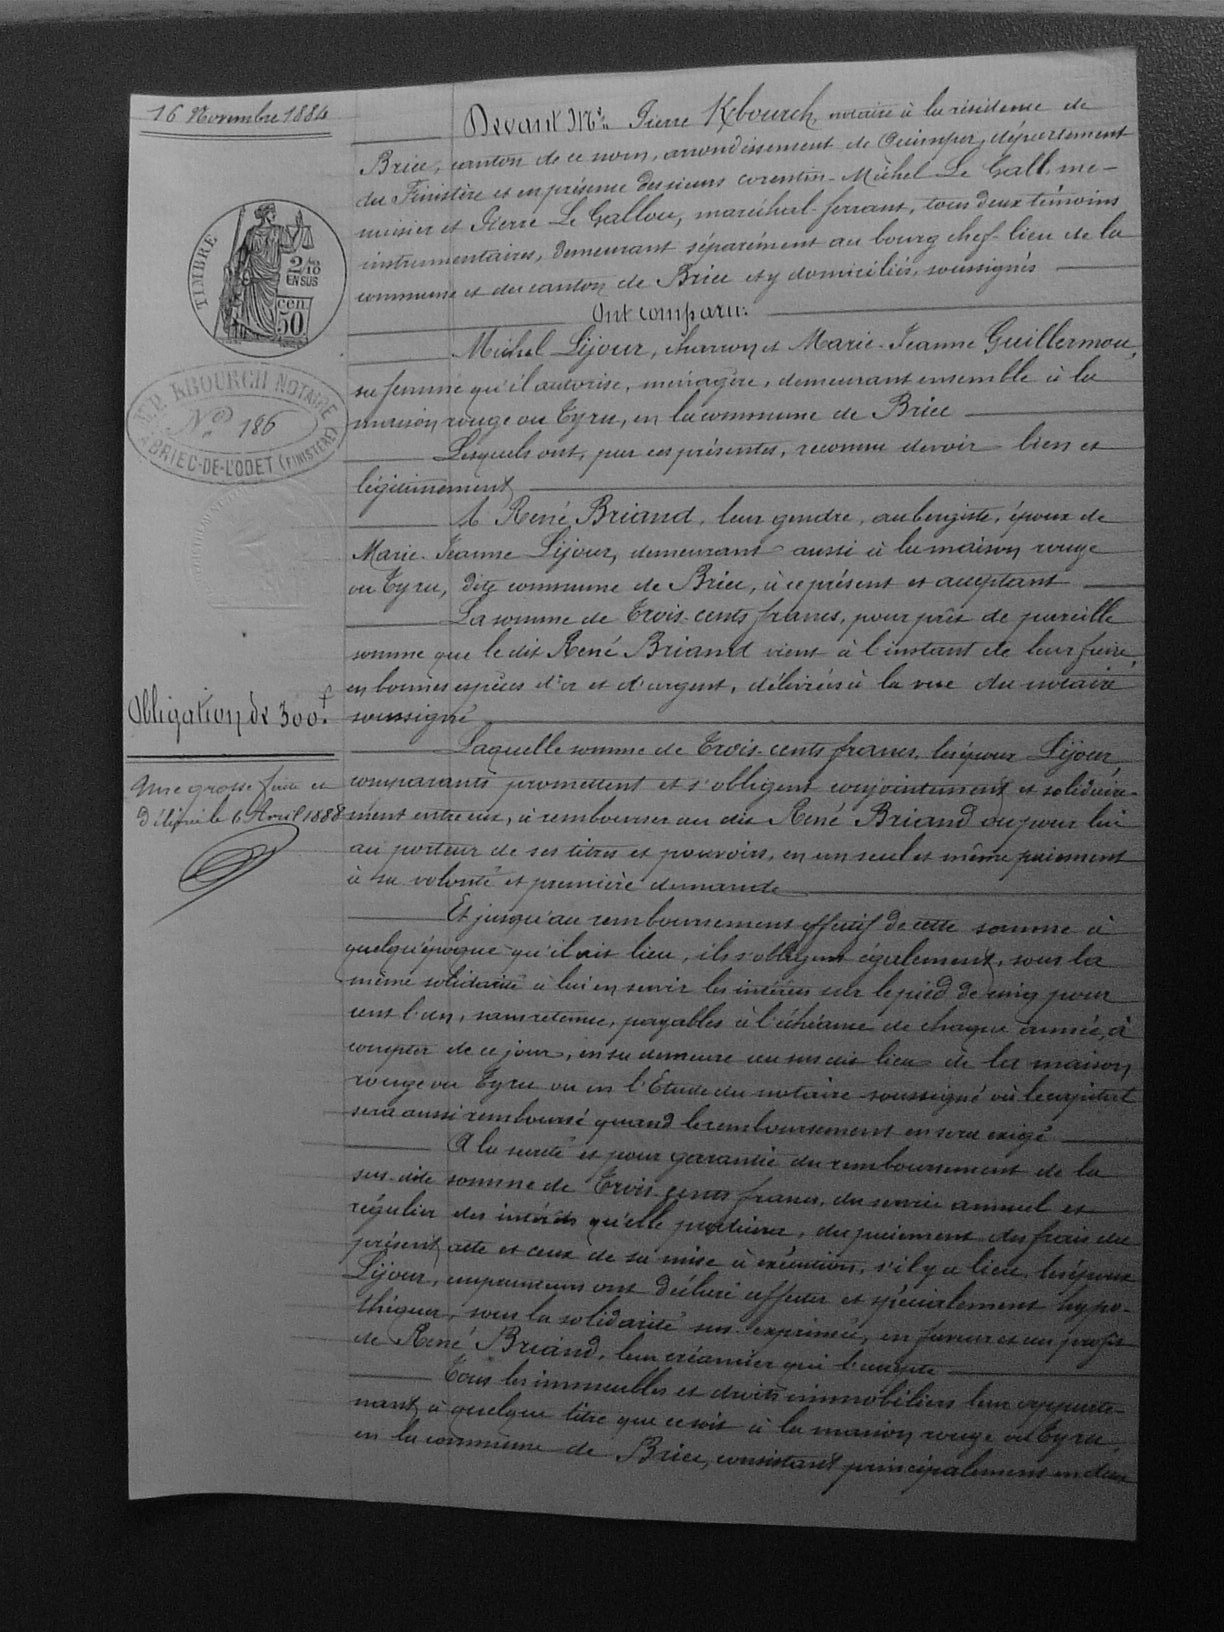 16 Novembre 1884
TIMBRE
2/10
EN SUS
cen
50
Me P. KBOURCH NOTAIRE
No 186
A BRIEC-DE-L'ODET (FINISTÈRE)
Obligation de 300f.
Une grosse faite et
délivrée le 6 Avril 1888
Devant Me Pierre Kbourch, notaire à la résidence de
Briec, canton de ce nom, arrondissement de Quimper, département
du Finistère et en présence des sieurs Corentin-Michel Le Gall, me-
nuisier et Pierre Le Gallou, maréchal-ferrant, tous deux témoins
instrumentaires, demeurant séparément au bourg chef-lieu de la
commune et du canton de Briec et y domiciliés, soussignés
Ont comparu:
Michel Lijour, charron et Marie-Jeanne Guillermou,
sa femme qu'il autorise, ménagère, demeurant ensemble à la
maison rouge ou Tyru, en la commune de Briec
Lesquels ont, par ces présentes, reconnu devoir bien et
légitimement
A René Briand, leur gendre, aubergiste, époux de
Marie-Jeanne Lijour, demeurant aussi à la maison rouge
ou Tyru, dite commune de Briec, à ce présent et acceptant
La somme de Trois-cents francs, pour prêt de pareille
somme que le dit René Briand vient à l'instant de leur faire,
en bonnes espèces d'or et d'argent, délivrées à la vue du notaire
soussigné
Laquelle somme de Trois-cents francs, les époux Lijour,
comparants promettent et s'obligent conjointement et solidaire-
ment entre eux, à rembourser au dit René Briand ou pour lui
au porteur de ses titres et pouvoirs, en un seul et même paiement
à sa volonté et première demande
Et jusqu'au remboursement effectif de cette somme à
quelqu'époque qu'il ait lieu, ils s'obligent également, sous la
même solidarité à lui en servir les intérêts sur le pied de cinq pour
cent l'an, sans retenue, payables à l'échéance de chaque année, à
compter de ce jour, en sa demeure au sus dit lieu de la maison
rouge ou Tyru ou en l'Etude du notaire soussigné où le capital
sera aussi remboursé quand le remboursement en sera exigé
A la sureté et pour garantie du remboursement de la
sus-dite somme de Trois-cents francs, du service annuel et
régulier des intérêts qu'elle produira, du paiement des frais du
présent acte et ceux de sa mise à exécution, s'il y a lieu, les époux
Lijour, emprunteurs ont déclaré affecter et spécialement hypo-
théquer, sous la solidarité sus-exprimée, en faveur et au profit
de René Briand, leur créancier qui l'accepte
Tous les immeubles et droits immobiliers leur apparte-
nant, à quelque titre que ce soit à la maison rouge ou Tyru,
en la commune de Briec, consistant principalement en deux